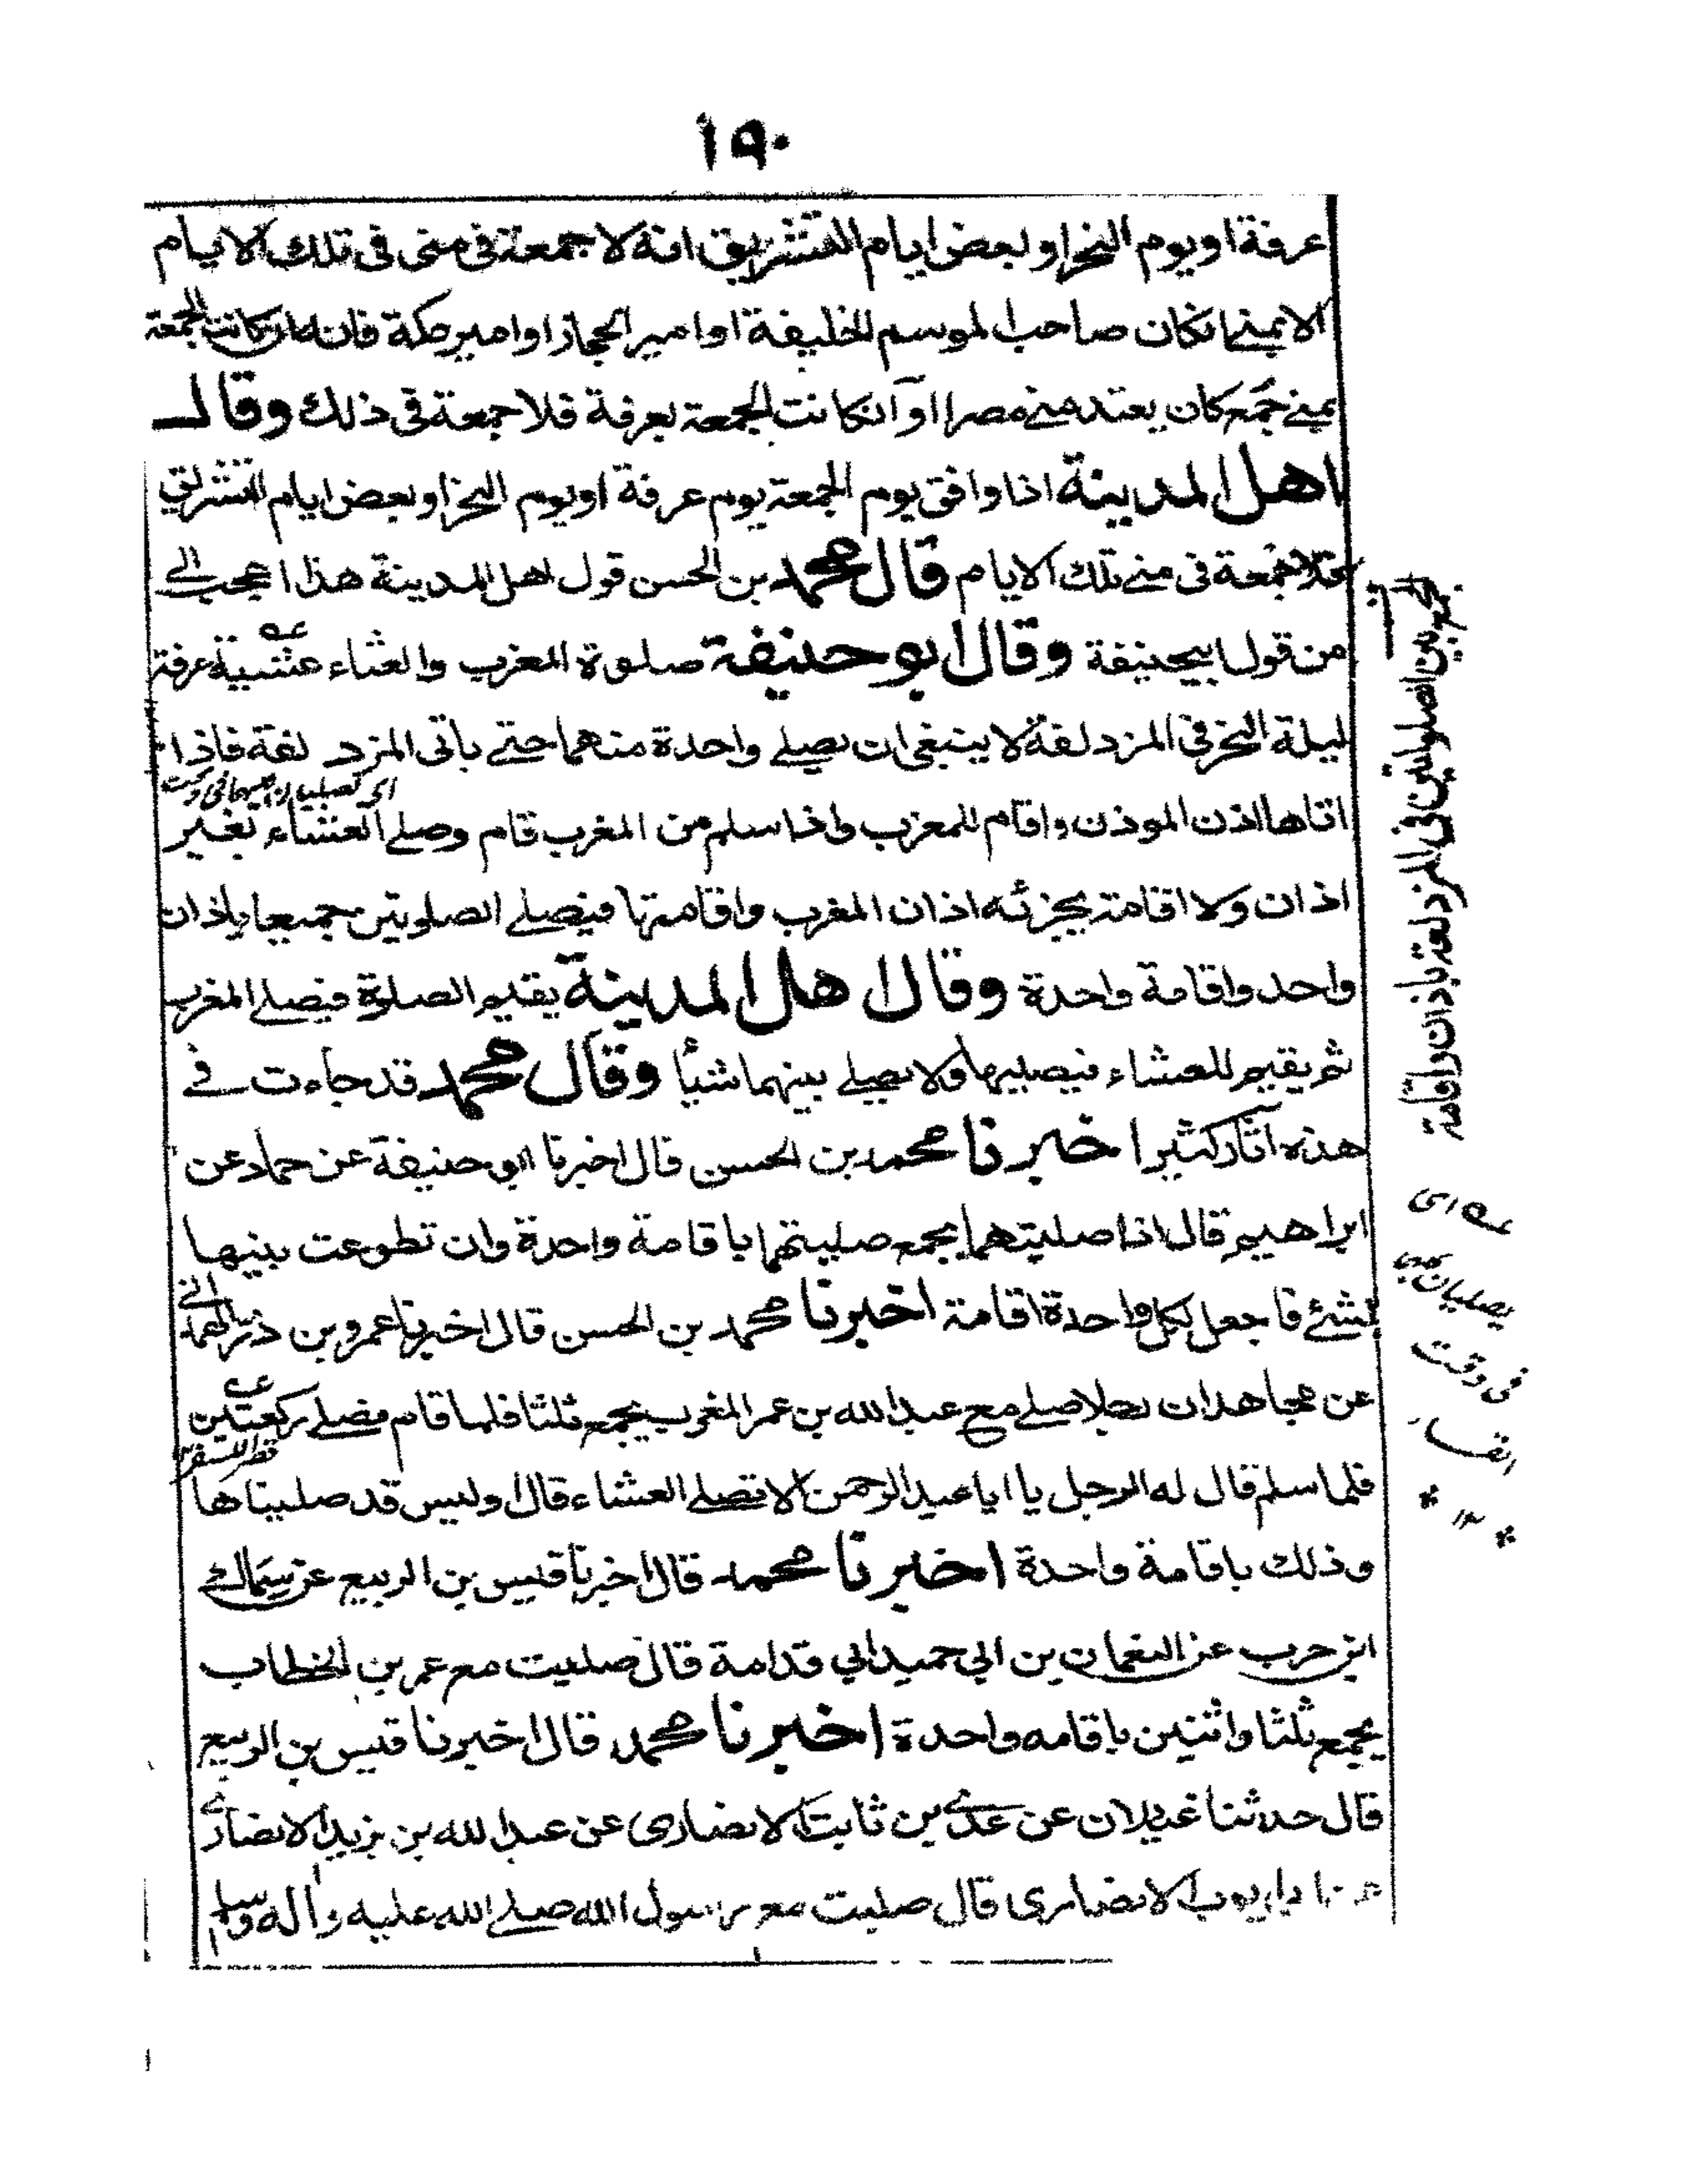 ١٩٠
عرفة او يوم النحر او بعض ايام التشريق انه لا جمعة فى منى فى تلك الايام
الا بمنى ان كان صاحب الموسم الخليفة او امير الحجاز او امير مكة فانه ان كانت الجمعة
بمنى جمع كان يعتد منى مصرا او ان كانت الجمعة بعرفة فلا جمعة فى ذلك وقال
اهل المدينة اذا وافق يوم الجمعة يوم عرفة او يوم النحر او بعض ايام التشريق
فلا جمعة فى منى تلك الايام قال محمد بن الحسن قول اهل المدينة هذا اعجب الى
من قول ابى حنيفة وقال ابو حنيفة صلوة المغرب والعشاء عشية عرفة
ليلة النحر فى المزدلفة لا ينبغى ان يصلى واحدة منهما حتى يأتى المزدلفة فاذا
اتاها اذن الموذن واقام للمغرب واذا سلم من المغرب قام وصلى العشاء بغير
اذان ولا اقامة يجزئه اذان المغرب واقامتها فيصلى الصلوتين جميعا باذان
واحد واقامة واحدة وقال اهل المدينة يقيم الصلوة فيصلى المغرب
ثم يقيم للعشاء فيصليها ولا يصلى بينهما شيأ وقال محمد قد جاءت فى
هذه آثار كثيرا اخبرنا محمد بن الحسن قال اخبرنا ابو حنيفة عن حماد عن
ابراهيم قال اذا صليتهما بجمع صليتهما باقامة واحدة وان تطوعت بينها
بشئ فاجعل لكل واحدة اقامة اخبرنا محمد بن الحسن قال اخبرنا عمرو بن ذر الهمدانى
عن مجاهد ان رجلا صلى مع عبد الله بن عمر المغرب بجمع ثلثا فلما قام فصلى ركعتين
فلما سلم قال له الرجل يا ابا عبد الرحمن الا تصلى العشاء قال او ليس قد صليناها
وذلك باقامة واحدة اخبرنا محمد قال اخبرنا قيس بن الربيع عن سماك
ابن حرب عن النعمان بن ابي حميد ابي قدامة قال صليت مع عمر بن الخطاب
بجمع ثلثا واثنين باقامه واحدة اخبرنا محمد قال اخبرنا قيس بن الربيع
قال حدثنا غيلان عن عدى بن ثابت الانصارى عن عبد الله بن يزيد الانصارى
ايوب الانصارى قال صليت مع رسول الله صلى الله عليه وآله وسلم
الجمع بين الصلوتين فى المزدلفة باذان واقامة
عه اى
يصليان
فى وقت